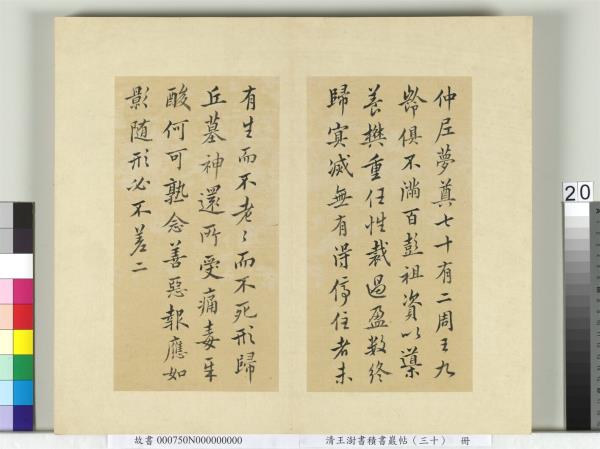 仲尼夢奠七十有二周王九
齡俱不滿百彭祖資以導
養樊重任性裁過盈數終
歸冥滅無有得停住者未
有生而不老〻而不死形歸
丘墓神還所受痛毒辛
酸何可熟念善惡報應如
影随形必不差二
20
故書 000750N000000000
清王澍書積書巖帖（三十） 冊